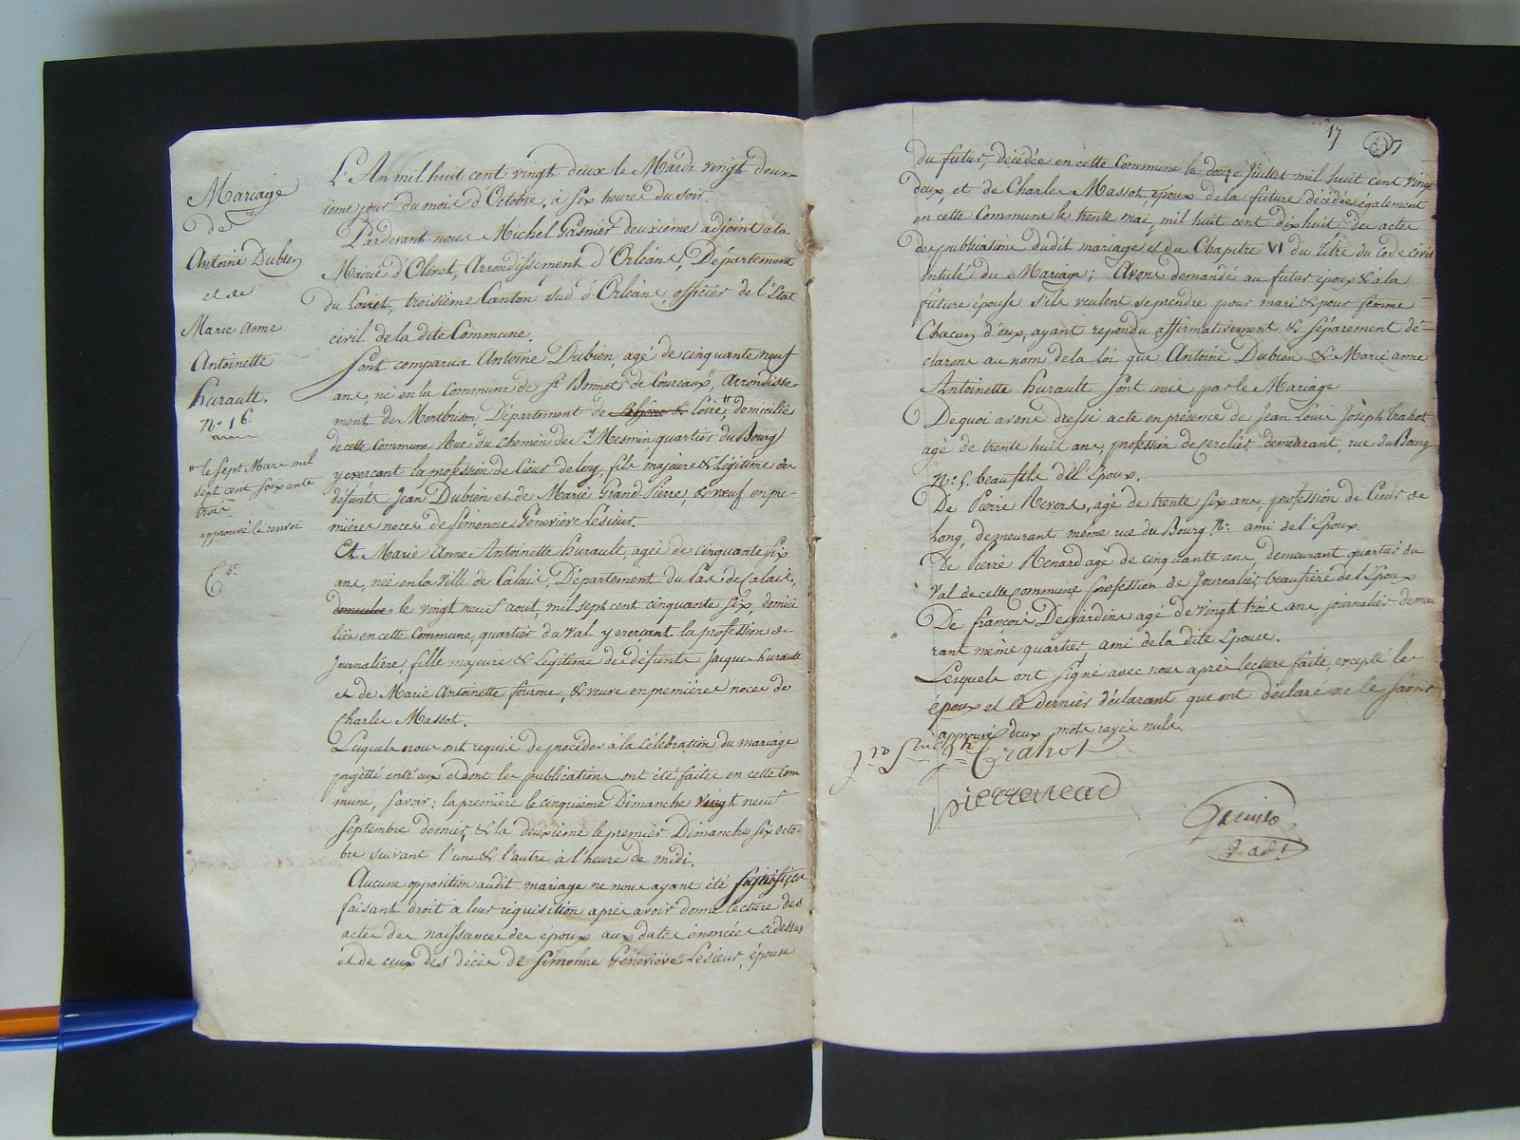 Mariage
de
Antoine Dubien
et de
Marie Anne
Antoinette
hurault.
N.° 16
" le Sept Mars mil
sept cent soixante
trois
approuvé le renvoi
L'An mil huit cent vingt deux le Mardi vingt deux-
ième jour du mois d'Octobre, à six heures du soir.
Pardevant nous Michel deuxième adjoint à la
Mairie d'Olivet, Arrondissement d'Orléans, Département
du Loiret, troisième Canton sud d'Orléans, officier de l'Etat
civil de la dite Commune.
Sont comparus Antoine Dubien, agé de cinquante neuf
ans, né en la Commune de St. Bonnet de Coureaux, Arrondisse-
ment de Montbrison, Département de Loire " domicilié
de cette Commune Rue du chemin de St. Mesmin quartier du Bourg
y exerçant la profession de Cieur de long, fils majeur & légitime de
défunts Jean Dubien et de Marie Grand Pierre & veuf en pre-
mières noces de Simonne Geneviève Lesieur.
Et Marie Anne Antoinette hurault, agée de cinquante six
ans, née en la Ville de Calais, Département du Pas de Calais,
le vingt neuf aout, mil sept cent cinquante six, domici
liée en cette Commune, quartier du Val y exerçant la profession de
Journalière, fille majeure & légitime de défunts Jacques hurault
et de Marie Antoinette fourme, & veuve en premières noces de
Charles Massot.
Lesquels nous ont requis de procéder à la Célébration du mariage
projetté entr'eux et dont les publications ont été faites en cette Com
mune, savoir: la première le cinquième Dimanche vingt neuf
Septembre dernier, & la deuxième le premier Dimanche six octo-
bre suivant l'une & l'autre à l'heure de midi.
Aucune opposition audit mariage ne nous ayant été signifiée
faisant droit a leur réquisition après avoir donné lecture des
actes de naissance des epoux aux dates énoncées cidessus
et de ceux des décès de Simonne Geneviève Lesieur, épouse
17
du futur, décédée en cette Commune le douze Juillet mil huit cent vingt
deux, et de Charles Massot, époux de la future décédé également
en cette Commune le trente mai, mil huit cent dix huit des actes
de publications dudit mariage et du Chapitre VI du titre du Code Civil
intitulé du Mariage; Avons demandé au futur époux & à la
future épouse s'ils veulent se prendre pour mari & pour femme
Chacun d'eux, ayant répondu affirmativement & séparement dé-
clarons au nom de la loi que Antoine Dubien & Marie anne
Antoinette hurault sont unis par le Mariage
De quoi avons dressé acte en présence de Jean Louis Joseph trahot
agé de trente huit ans, profession de cerclier demeurant, rue du Bourg
N.° 5. beau fils de l'Epoux.
De Pierre Nevers, agé de trente six ans, profession de Cieur de
Long, demeurant même rue du Bourg N.° ami de l'Epoux
De Pierre Renard agé de cinquante ans, demeurant quartier du
Val de cette commune profession de Journalier beaufrère de l'Epoux
De françois Desjardins agé de vingt trois ans journalier demeu
rant même quartier, ami de la dite Epouse.
Lesquels ont signé avec nous après lecture faite, excepté les
époux et le dernier déclarant qui ont déclaré ne le savoir
approuvé deux mots rayés nuls.
Trahot
pierrenard